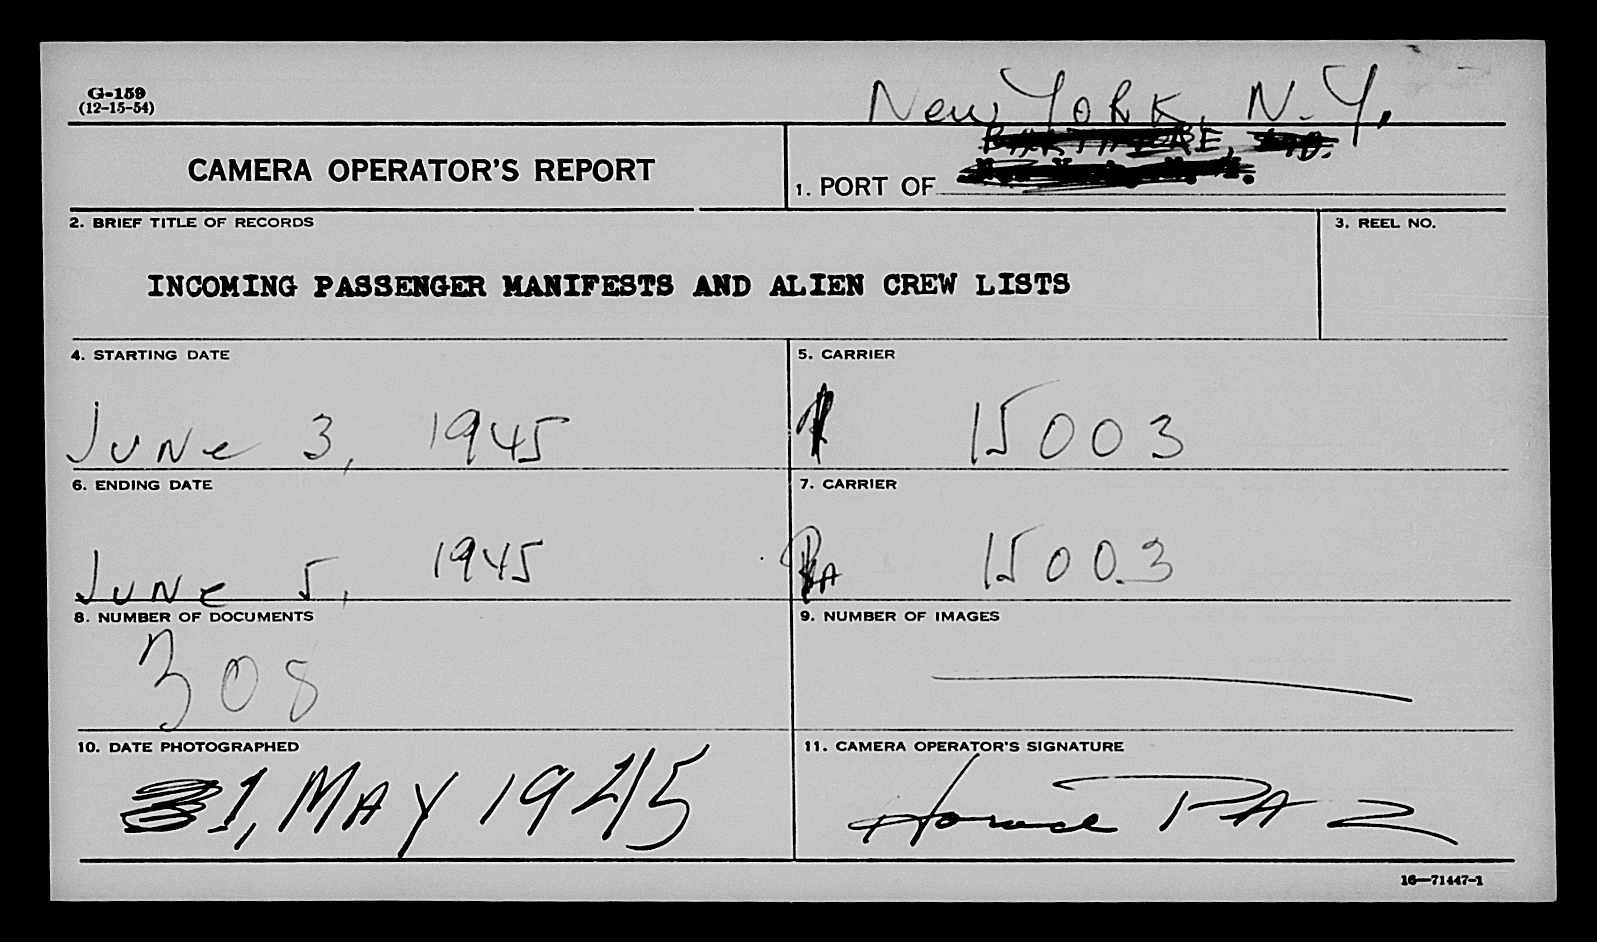 G-159
(12-15-54)
New York, N.Y.
CAMERA OPERATOR'S REPORT
BALTIMORE, MD.
1. PORT OF
2. BRIEF TITLE OF RECORDS
3. REEL NO.
INCOMING PASSENGER MANIFESTS AND ALIEN CREW LISTS
4. STARTING DATE
5. CARRIER
June 3, 1945
15003
6. ENDING DATE
7. CARRIER
June 5, 1945
15003
8. NUMBER OF DOCUMENTS
9. NUMBER OF IMAGES
308
10. DATE PHOTOGRAPHED
11. CAMERA OPERATOR'S SIGNATURE
1, MAY 1945
Horace PAZ
16—71447-1